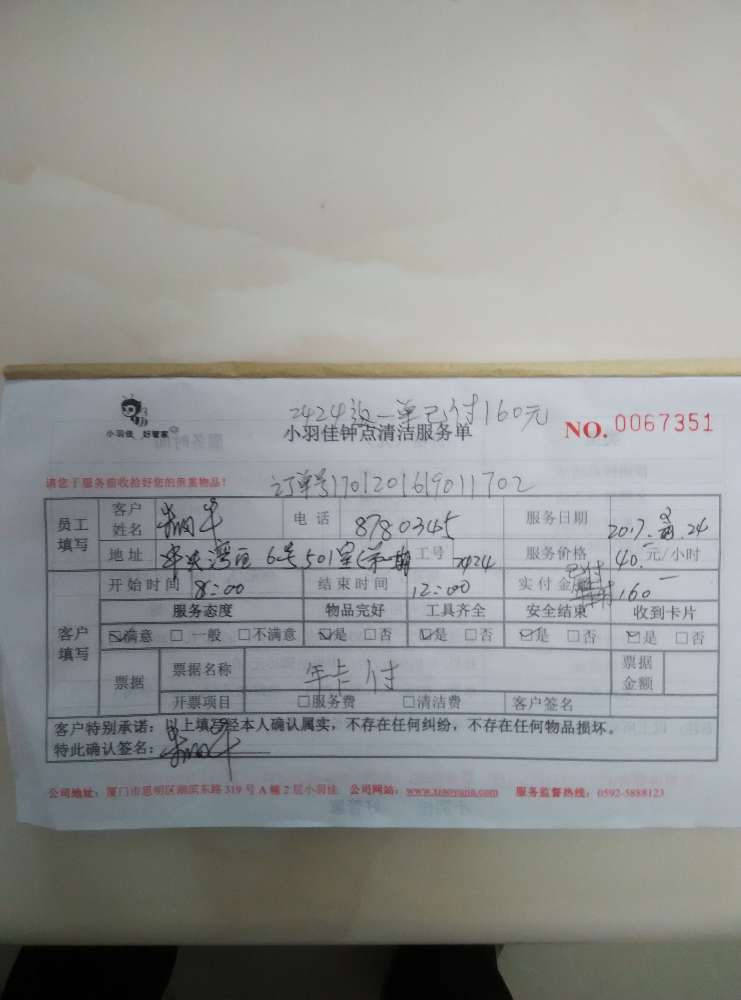 2424这一单已付160元
小羽佳 好管家
小羽佳钟点清洁服务单
NO. 0067351
请您于服务前收拾好您的贵重物品!
订单号1701201619011702
员工填写 客户姓名 电话 8780345 服务日期 2017. .24
地址 6号501室(第一期 工号 2424 服务价格 40.元/小时
客户填写 开始时间 8:00 结束时间 12:00 实付金额 160
服务态度 物品完好 工具齐全 安全结束 收到卡片
☑满意 □一般 □不满意 ☑是 □否 ☑是 □否 ☑是 □否 ☑是 □否
票据 票据名称 年卡付 票据金额
开票项目 □服务费 □清洁费 客户签名
客户特别承诺:以上填写经本人确认属实,不存在任何纠纷,不存在任何物品损坏。
特此确认签名:
公司地址:厦门市思明区湖滨东路 319 号 A 幢 2 层小羽佳 公司网站:www.xiaoyujia.com 服务监督热线:0592-5888123